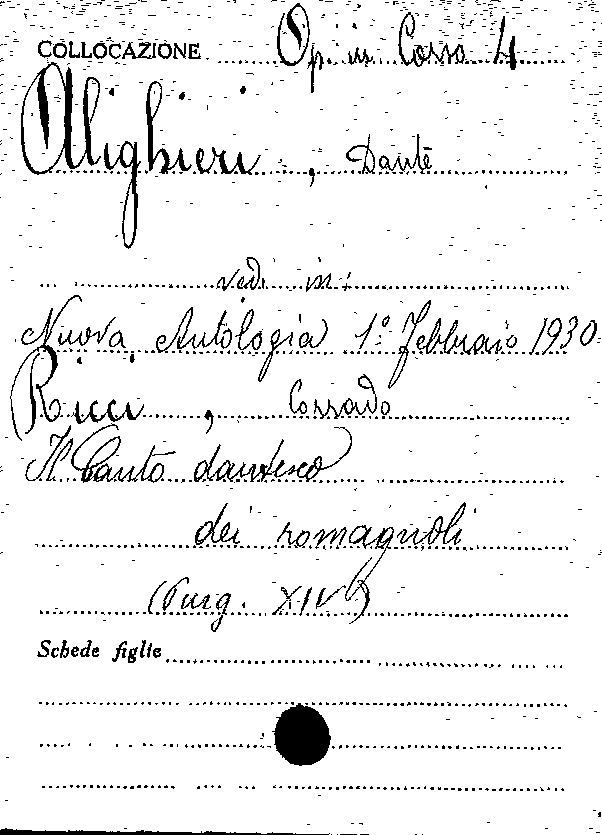 COLLOCAZIONE Op. in Corso 4
Alighieri, Dante
vedi in:
Nuova Antologia 1° Febbraio 1930
Ricci, Corrado
Il Canto dantesco
dei romagnoli
(Purg. XIV)
Schede figlie